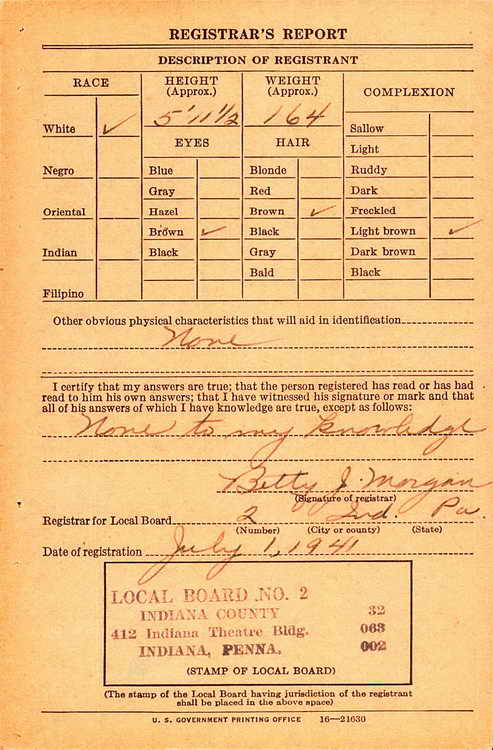 REGISTRAR'S REPORT
DESCRIPTION OF REGISTRANT
RACE
HEIGHT
(Approx.)
WEIGHT
(Approx.)
COMPLEXION
5' 11 1/2
164
White ✓
EYES
HAIR
Sallow
Light
Negro
Blue
Blonde
Ruddy
Gray
Red
Dark
Oriental
Hazel
Brown ✓
Freckled
Brown ✓
Black
Light brown ✓
Indian
Black
Gray
Dark brown
Bald
Black
Filipino
Other obvious physical characteristics that will aid in identification
None
I certify that my answers are true; that the person registered has read or has had
read to him his own answers; that I have witnessed his signature or mark and that
all of his answers of which I have knowledge are true, except as follows:
None to my knowledge
Betty J. Morgan
(Signature of registrar)
Registrar for Local Board 2 Ind. Pa.
(Number) (City or county) (State)
Date of registration July 1, 1941
LOCAL BOARD NO. 2
INDIANA COUNTY 32
412 Indiana Theatre Bldg. 063
INDIANA, PENNA. 002
(STAMP OF LOCAL BOARD)
(The stamp of the Local Board having jurisdiction of the registrant
shall be placed in the above space)
U. S. GOVERNMENT PRINTING OFFICE 16—21630